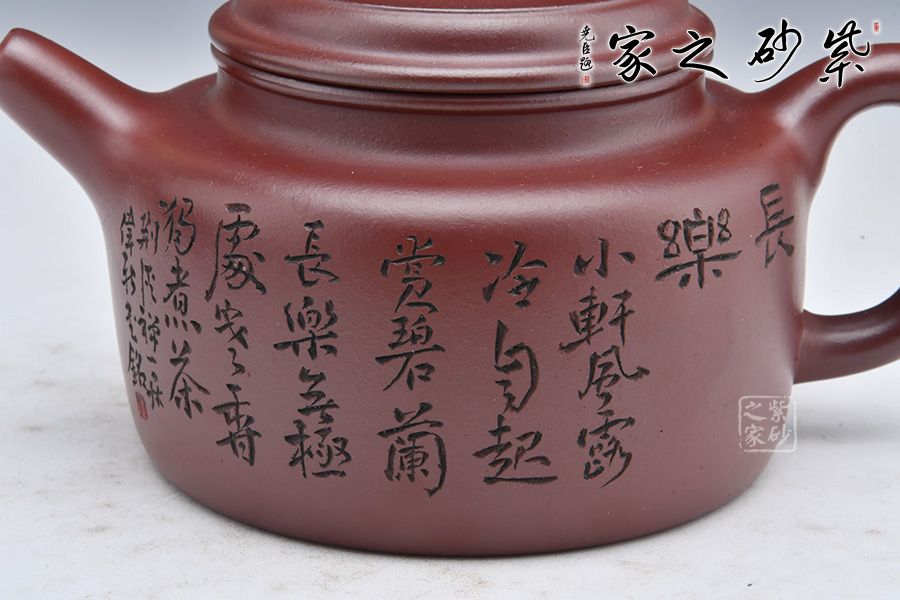 紫砂之家
堯臣題
長
樂
小軒風露
冷自起
賞碧蘭
長樂無極
處香
獨煮茶
銘
紫砂
之家